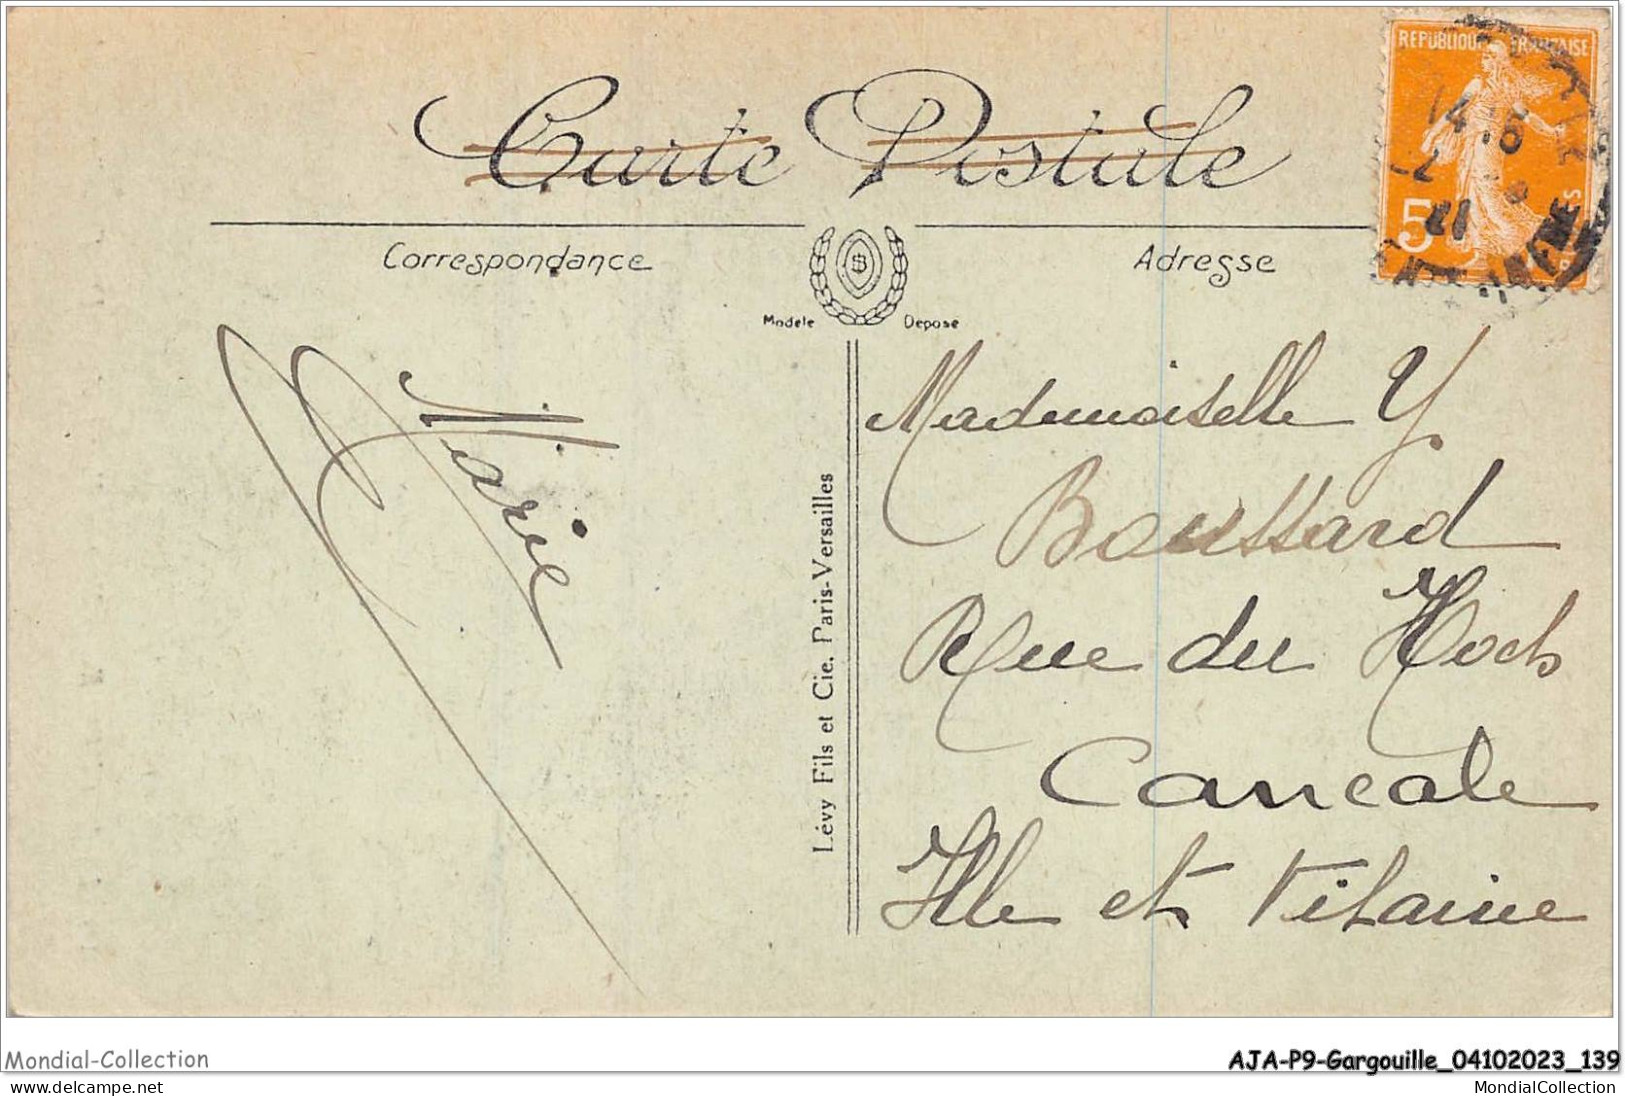 Carte Postale
REPUBLIQUE FRANÇAISE
5
Correspondance
Adresse
Modèle Déposé
Marie
Lévy Fils et Cie. Paris-Versailles
Mademoiselle Y
Boussard
Rue du Hoch
Cancale
Ille et Vilaine
Mondial-Collection
AJA-P9-Gargouille_04102023_139
delcampe.net
MondialCollection